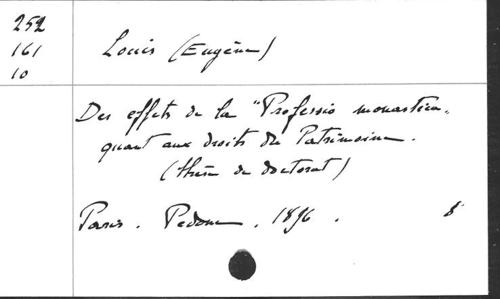 252
161
10
Louis (Eugène)
Des effets de la "Professio monastica"
quant aux droits du Patrimoine.
(thèse de doctorat)
Paris. Pedone. 1896. 8